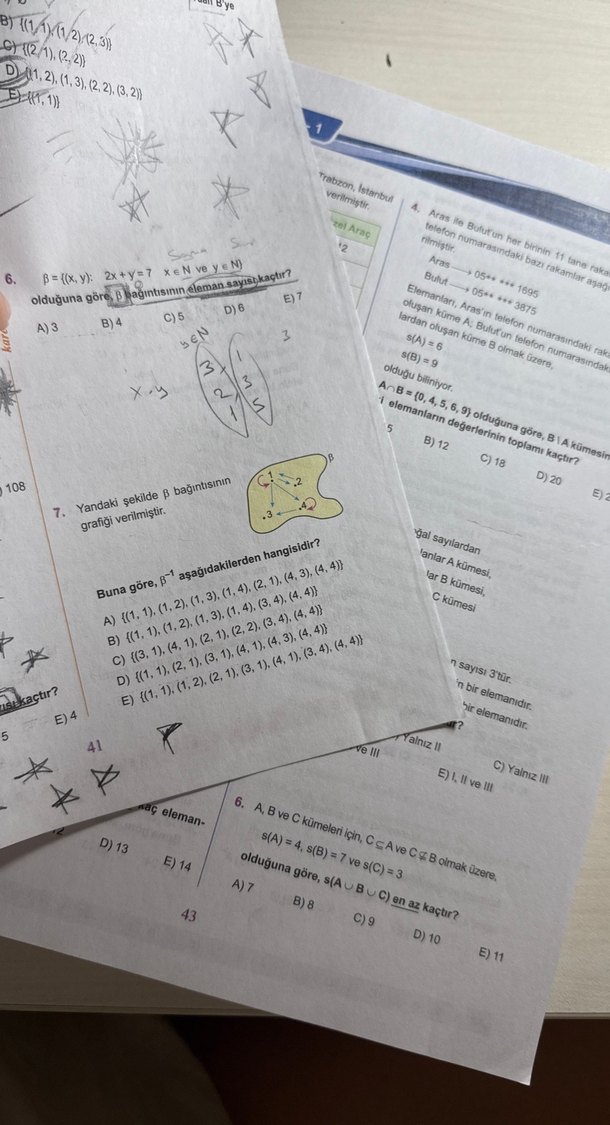 B) {(1, 1), (1, 2), (2, 3)}
C) {(2, 1), (2, 2)}
D) {(1, 2), (1, 3), (2, 2), (3, 2)}
E) {(1, 1)}
6. β = {(x, y): 2x + y = 7 x ∈ N ve y ∈ N}
olduğuna göre, β bağıntısının eleman sayısı kaçtır?
A) 3 B) 4 C) 5 D) 6 E) 7
y∈N
x . y
3 1
2 3
1 5
3
108
7. Yandaki şekilde β bağıntısının
grafiği verilmiştir.
β
1
.2
.3
.4
Buna göre, β⁻¹ aşağıdakilerden hangisidir?
A) {(1, 1), (1, 2), (1, 3), (1, 4), (2, 1), (4, 3), (4, 4)}
B) {(1, 1), (1, 2), (1, 3), (1, 4), (3, 4), (4, 4)}
C) {(3, 1), (4, 1), (2, 1), (2, 2), (3, 4), (4, 4)}
D) {(1, 1), (2, 1), (3, 1), (4, 1), (4, 3), (4, 4)}
E) {(1, 1), (1, 2), (2, 1), (3, 1), (4, 1), (3, 4), (4, 4)}
kaçtır?
5 E) 4
41
- 1
Trabzon, İstanbul
verilmiştir.
zel Araç
4. Aras ile Bulut'un her birinin 11 tane
telefon numarasındaki bazı rakamlar
rilmiştir.
Aras → 05** *** 1695
Bulut → 05** *** 3875
Elemanları, Aras'ın telefon numarasındaki
oluşan küme A; Bulut'un telefon numarasındaki
lardan oluşan küme B olmak üzere,
s(A) = 6
s(B) = 9
olduğu biliniyor.
A ∩ B = {0, 4, 5, 6, 9} olduğuna göre, B \ A
elemanların değerlerinin toplamı kaçtır?
5 B) 12 C) 18 D) 20 E) 2
ğal sayılardan
lanlar A kümesi,
lar B kümesi,
C kümesi
n sayısı 3'tür.
n bir elemanıdır.
bir elemanıdır.
Yalnız II C) Yalnız III
ve III E) I, II ve III
kaç eleman-
12 D) 13 E) 14
6. A, B ve C kümeleri için, C ⊆ A ve C ⊈ B olmak üzere,
s(A) = 4, s(B) = 7 ve s(C) = 3
olduğuna göre, s(A ∪ B ∪ C) en az kaçtır?
A) 7 B) 8 C) 9 D) 10 E) 11
43